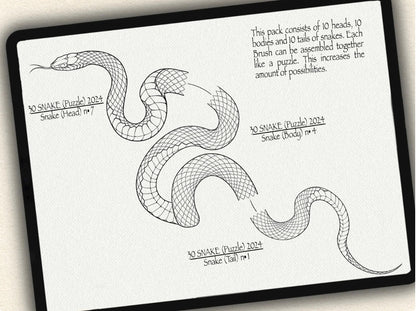 This pack consists of 10 heads, 10
bodies and 10 tails of snakes. Each
Brush can be assembled together
like a puzzle. This increases the
amount of possibilities.
30 SNAKE (Puzzle) 2024
Snake (Head) n• 7
30 SNAKE (Puzzle) 2024
Snake (Body) n• 4
30 SNAKE (Puzzle) 2024
Snake (Tail) n• 1